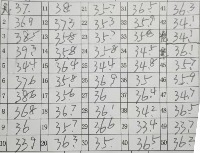 1 37 11 38 21 35.7 31 36.5 41 36.3
2 36.9 12 37.3 22 35.3 32 35.7 42 34.1
3 13 35.8 23 35.7 33 43 36.1
4 39.3 14 35.8 24 35.8 34 34.5 44 36.1
5 34.4 15 34.4 25 34.4 35 34.5 45 35.7
6 37.6 16 35.8 26 36.9 36 35 46 35.9
7 38.6 17 35.6 27 36 37 36.4 47 34.7
8 36.8 18 36.7 28 36.1 38 34.2 48 36.5
9 36 19 35.7 29 36.6 39 33.4 49 33.7
10 33.9 20 36.3 30 35 40 35.4 50 36.2